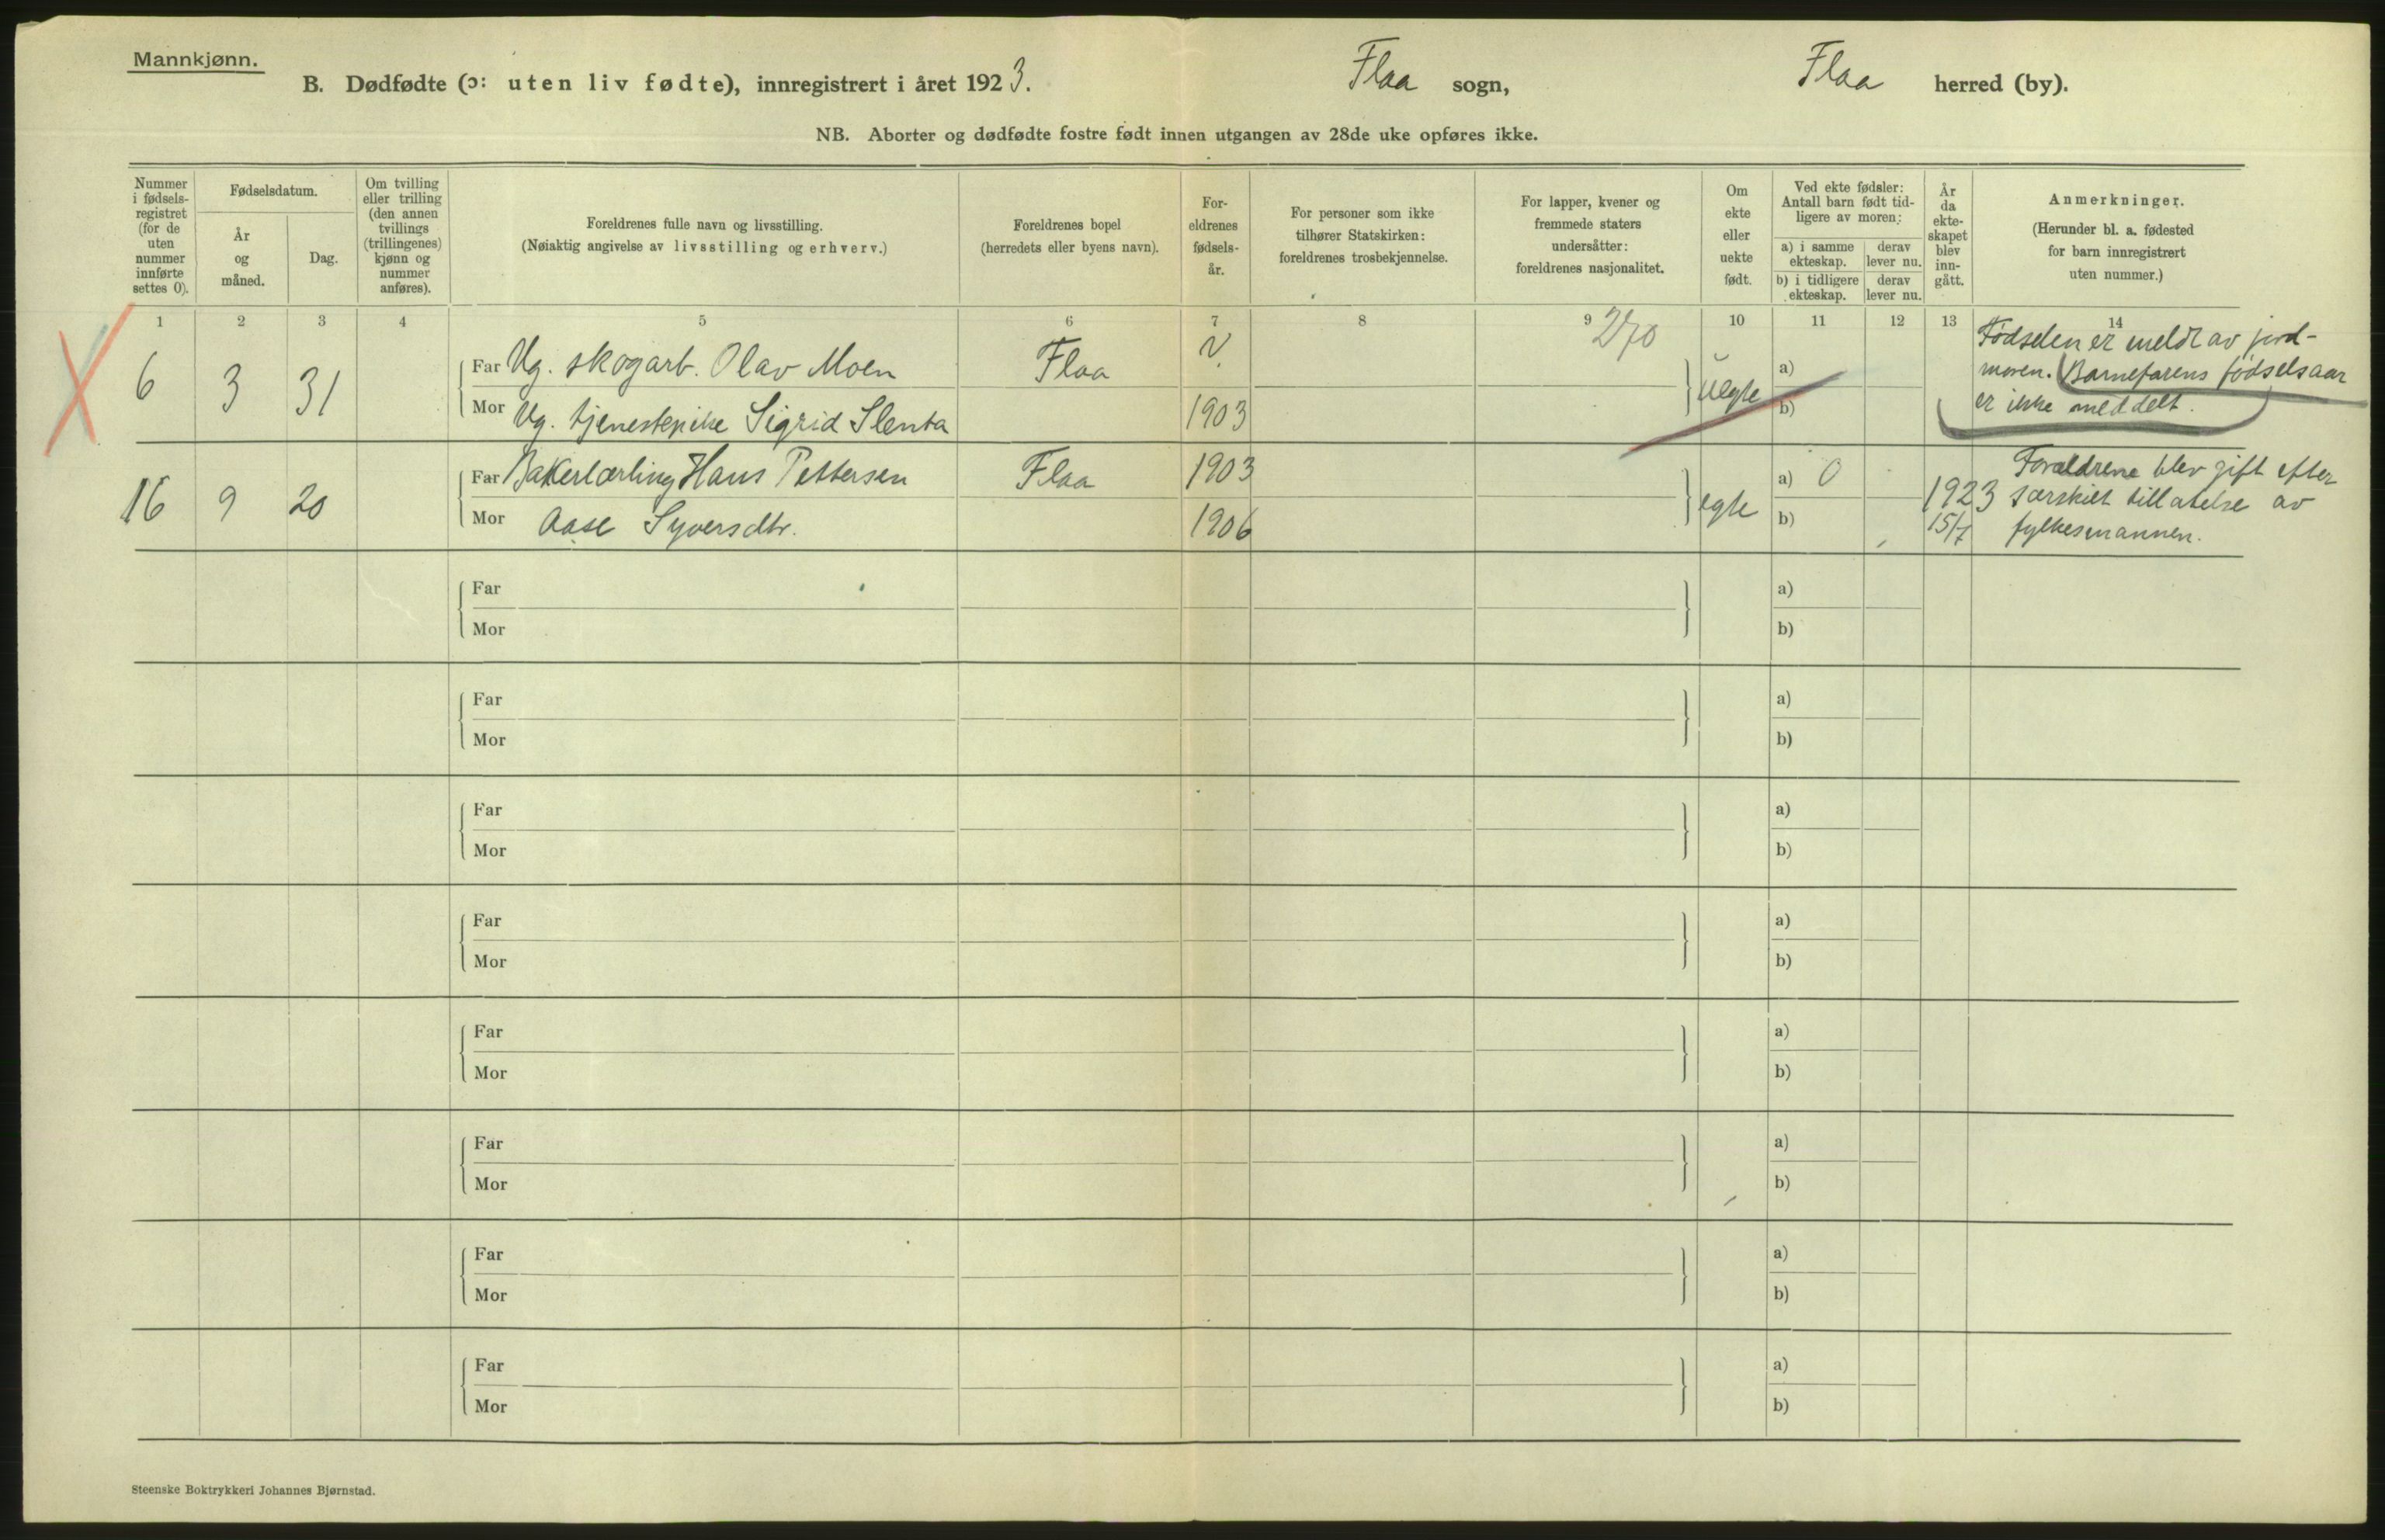 Mannkjønn.
B. Dødfødte (ɔ: uten liv fødte), innregistrert i året 1923. Flaa sogn, Flaa herred (by).
NB. Aborter og dødfødte fostre født innen utgangen av 28de uke opføres ikke.
Nummer i fødsels-registret (for de uten nummer innførte settes 0).
Fødselsdatum.
År og måned.
Dag.
Om tvilling eller trilling (den annen tvillings (trillingenes) kjønn og nummer anføres).
Foreldrenes fulle navn og livsstilling.
(Nøiaktig angivelse av livsstilling og erhverv.)
Foreldrenes bopel
(herredets eller byens navn).
For-eldrenes fødsels-år.
For personer som ikke tilhører Statskirken: foreldrenes trosbekjennelse.
For lapper, kvener og fremmede staters undersåtter: foreldrenes nasjonalitet.
Om ekte eller uekte født.
Ved ekte fødsler: Antall barn født tid-ligere av moren:
a) i samme ekteskap. derav lever nu.
b) i tidligere ekteskap. derav lever nu.
År da ekte-skapet blev inn-gått.
Anmerkninger.
(Herunder bl. a. fødested for barn innregistrert uten nummer.)
1 2 3 4 5 6 7 8 9 10 11 12 13 14
270
6 3 31 Far Ug. skogarb. Olav Moen Flaa ? Uegte a)
Mor Ug. tjenestepike Sigrid Slenta 1903 b)
Fødselen er meldt av jord-
moren. Barnefarens fødselsaar
er ikke meddelt.
16 9 20 Far Bakerlærling Hans Pettersen Flaa 1903 egte a) 0 1923
Mor Aase Syversdtr. 1906 b) 15/7
Forældrene blev gift efter
særskilt tillatelse av
fylkesmannen.
Far a)
Mor b)
Far a)
Mor b)
Far a)
Mor b)
Far a)
Mor b)
Far a)
Mor b)
Far a)
Mor b)
Far a)
Mor b)
Far a)
Mor b)
Steenske Boktrykkeri Johannes Bjørnstad.